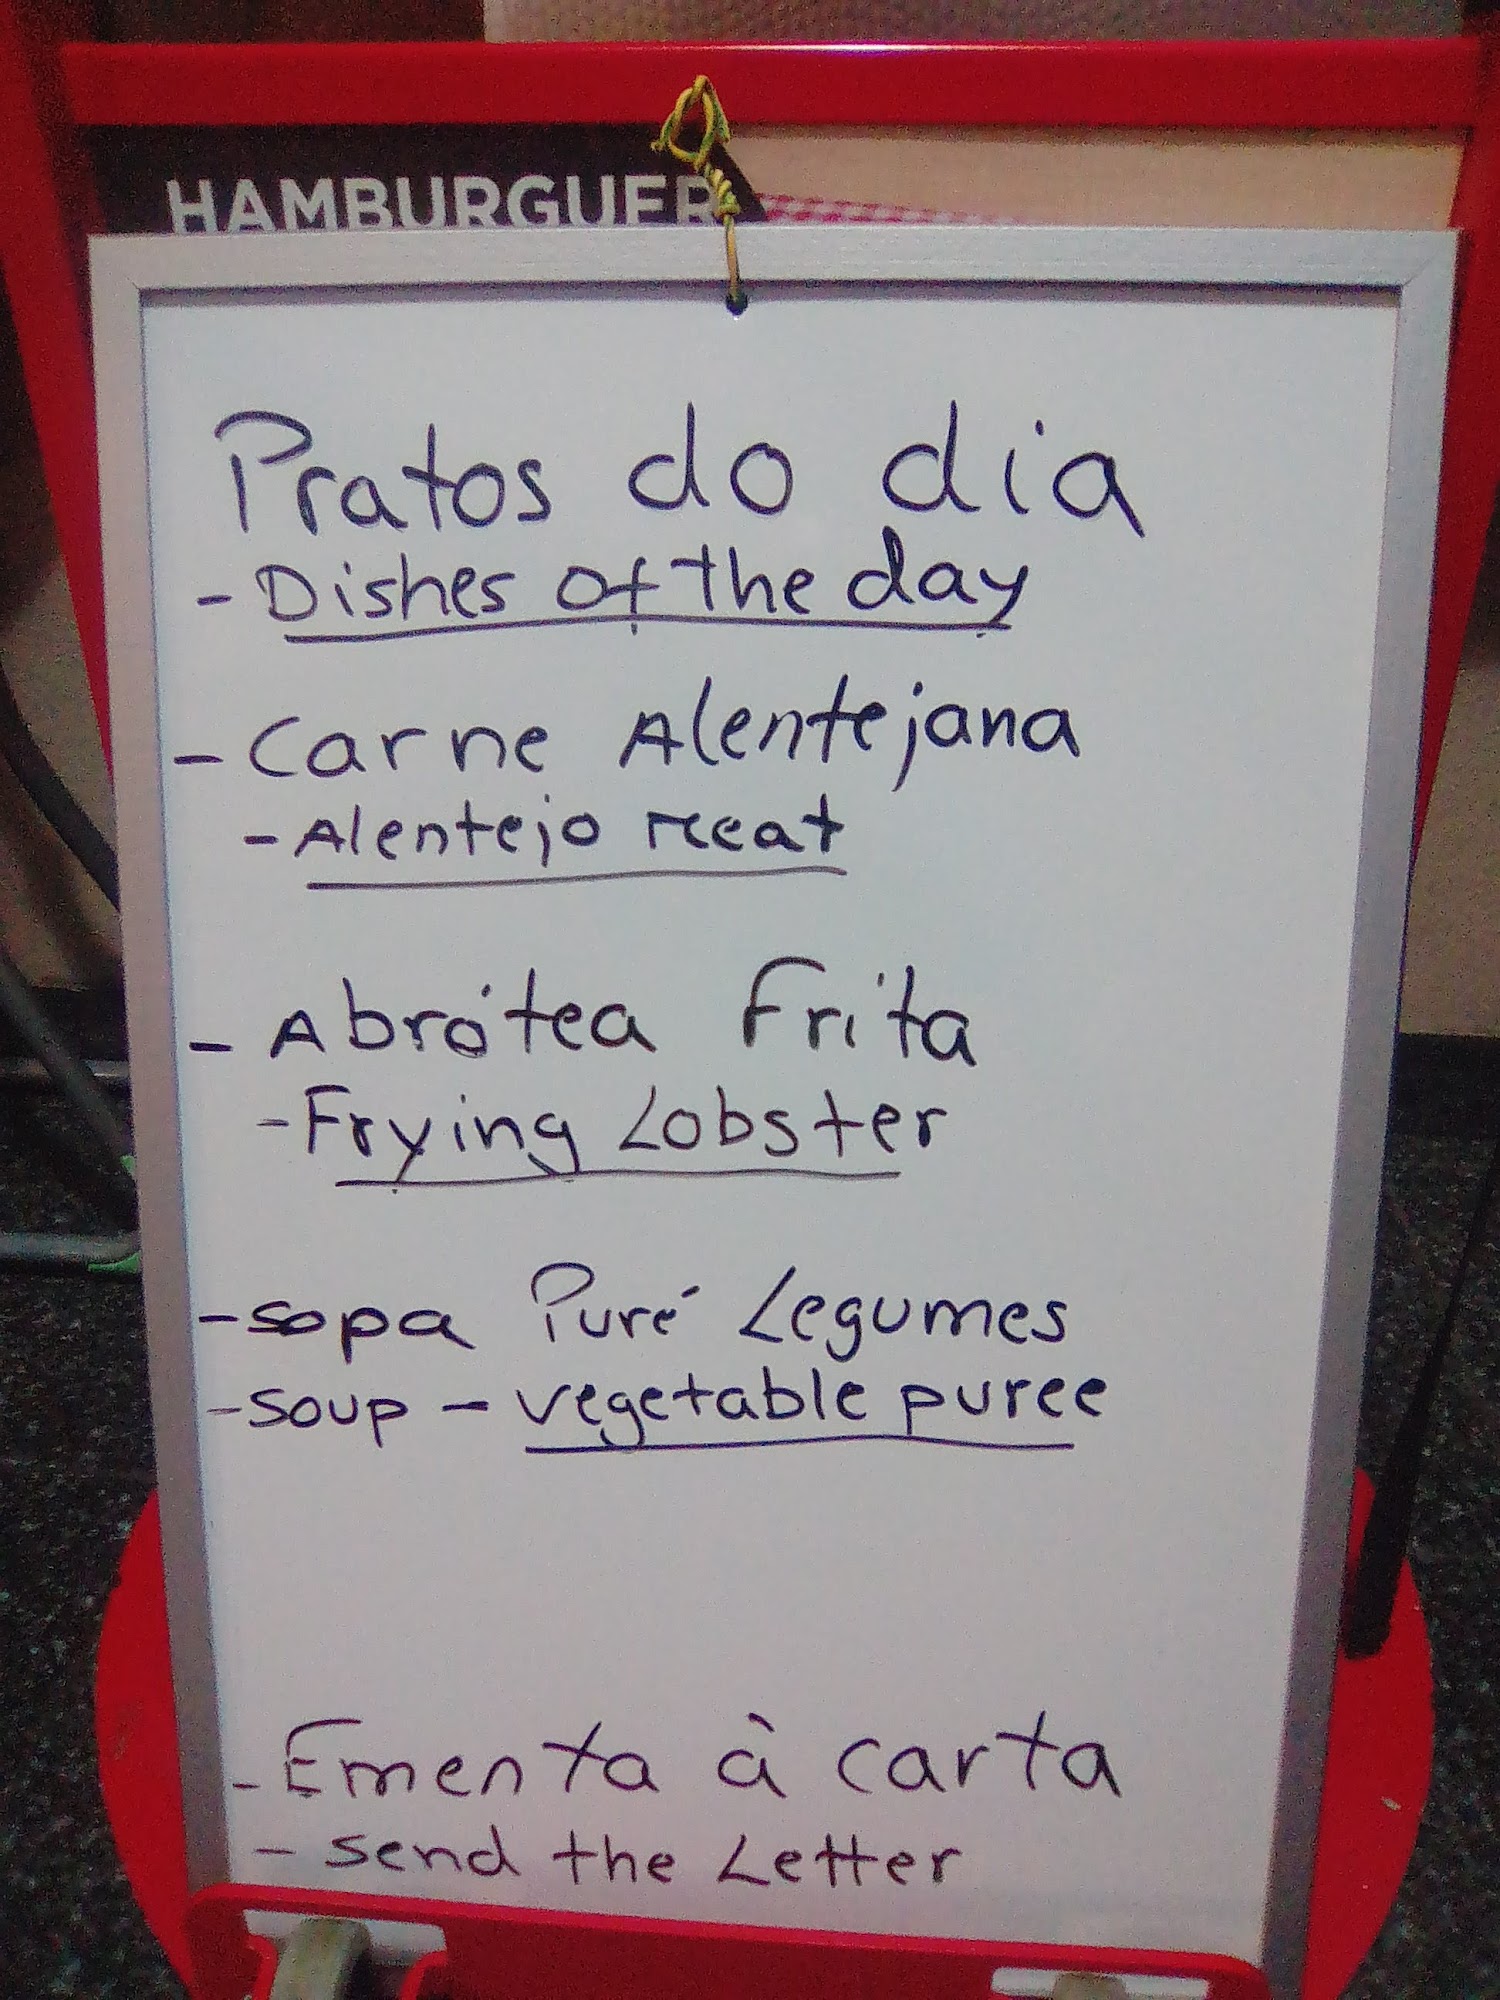 HAMBURGUER
Pratos do dia
- Dishes of the day
- Carne Alentejana
- Alentejo meat
- Abrótea Frita
- Frying Lobster
- sopa Puré Legumes
- soup - vegetable puree
- Ementa à carta
- send the Letter